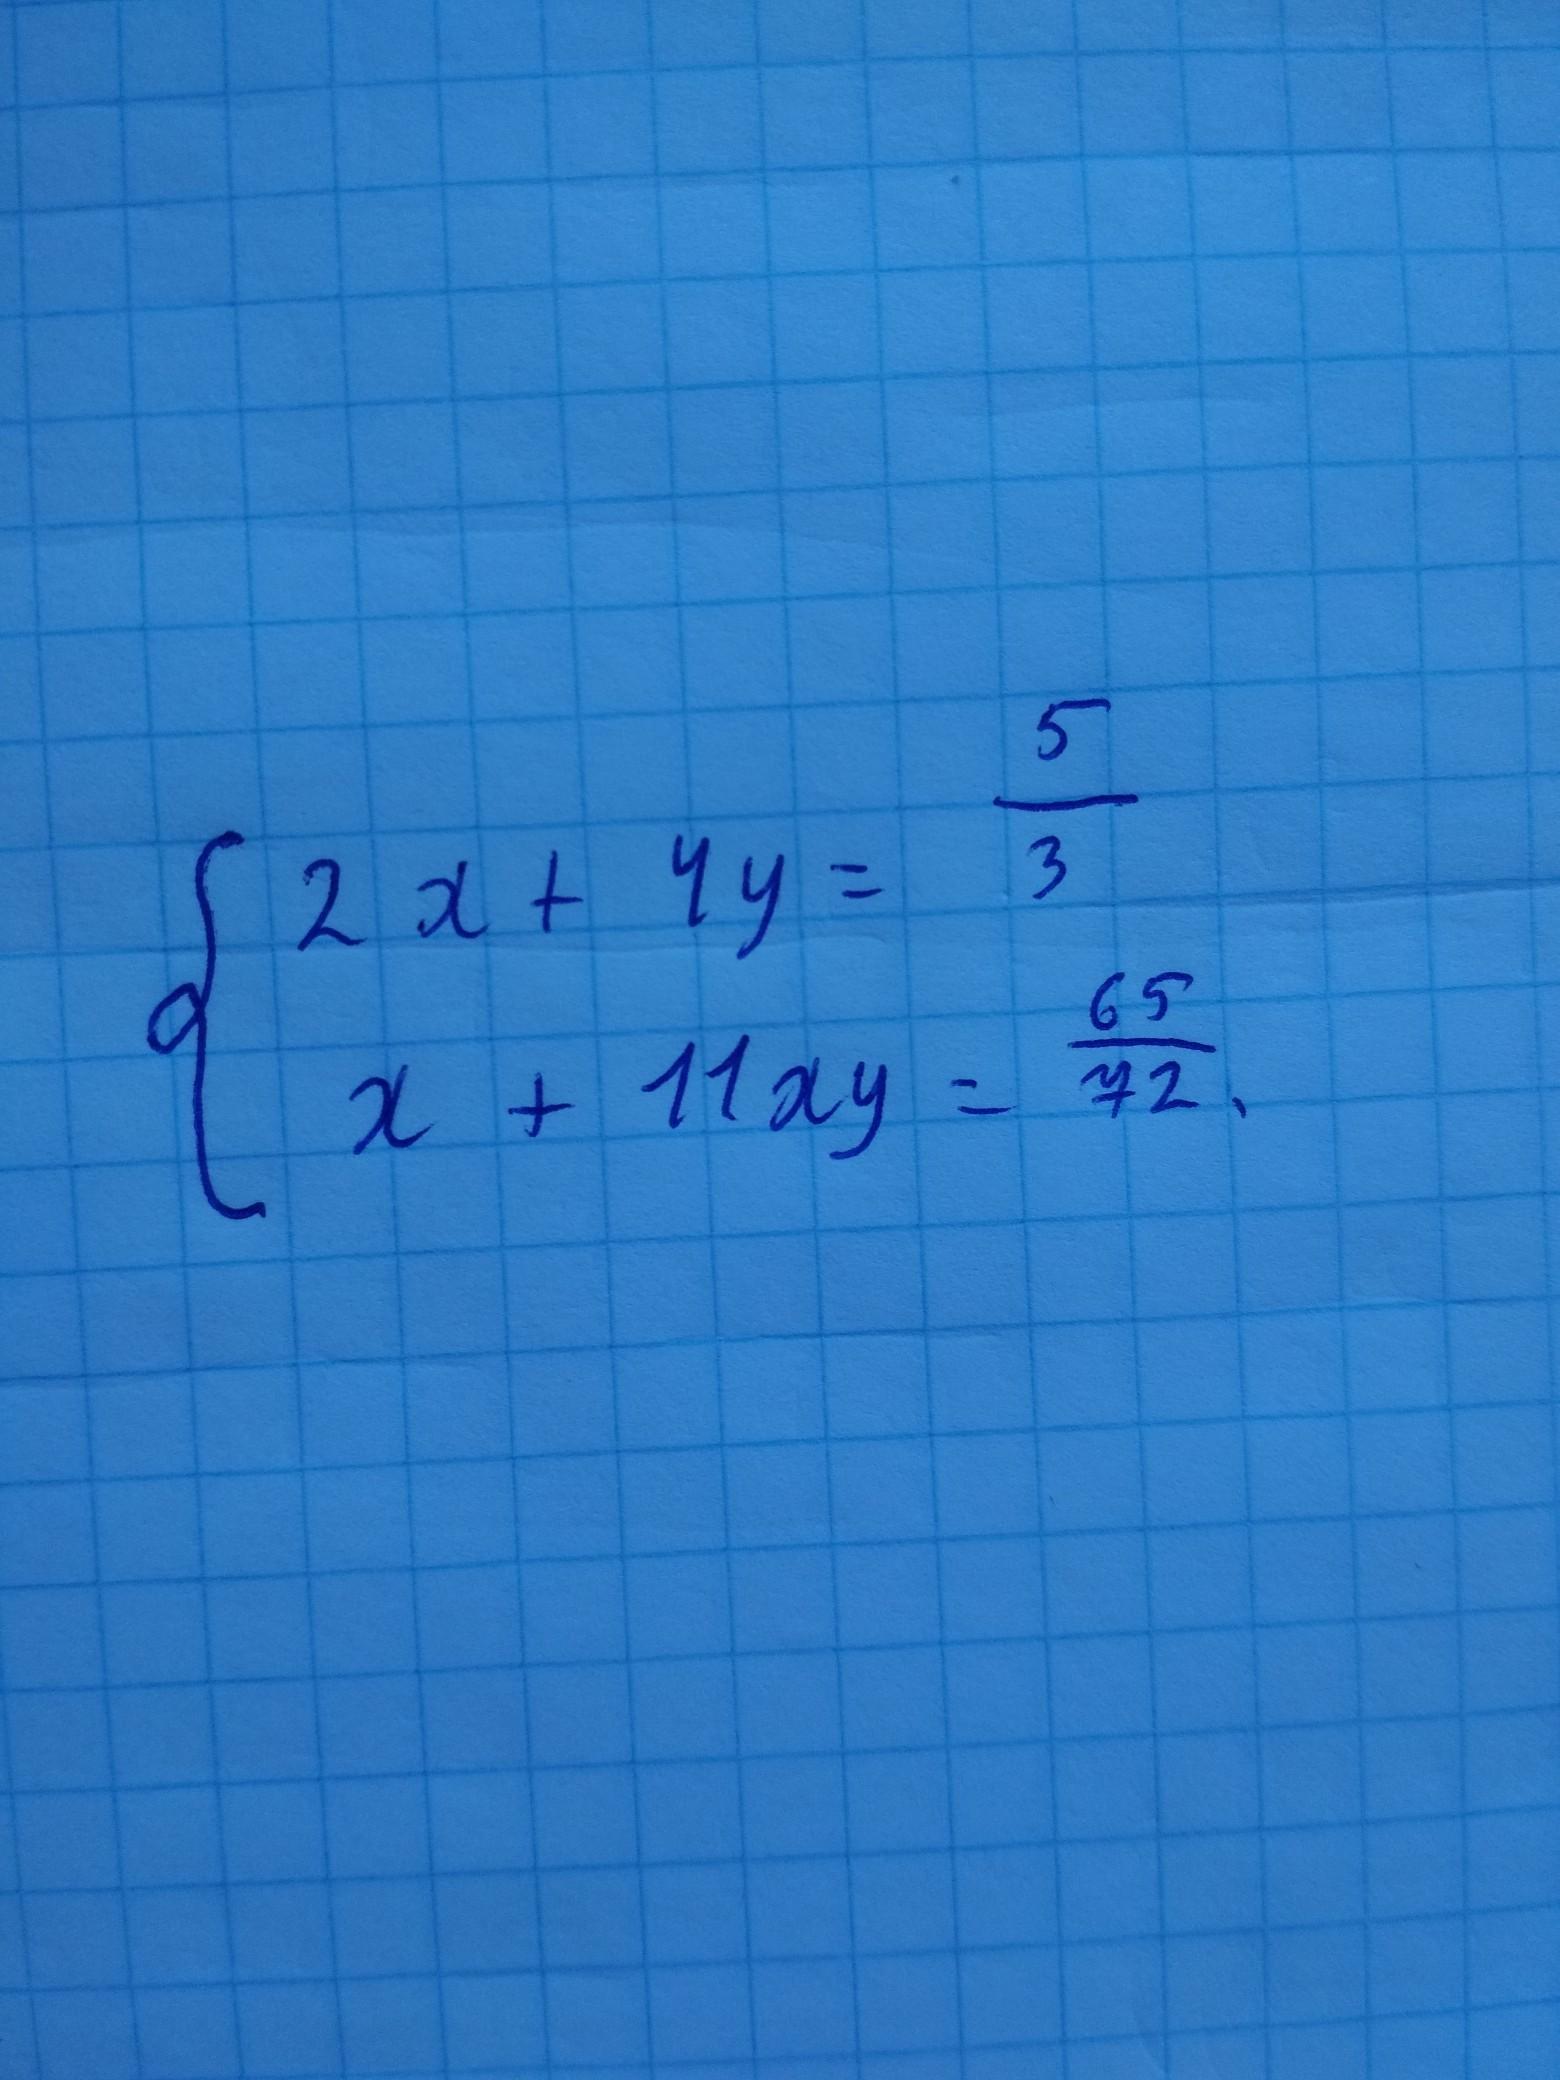 2x + 4y = 5/3
x + 11xy = 65/72.